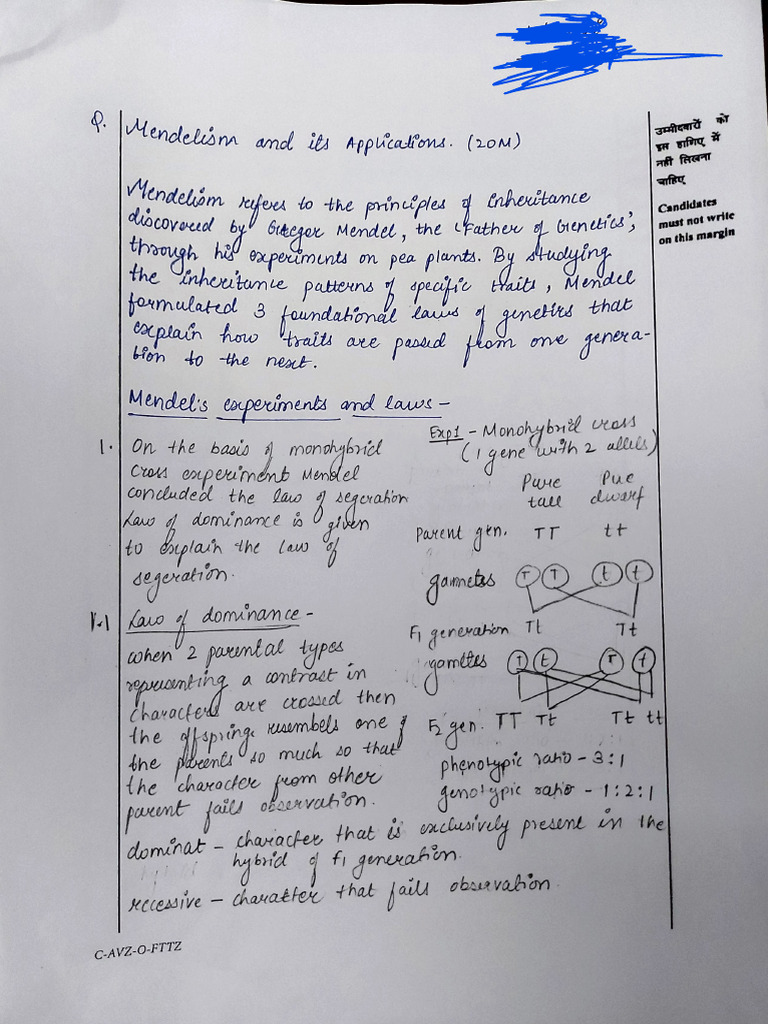 Q. Mendelism and its Applications. (20M)
उम्मीदवारों को
इस हाशिए में
नहीं लिखना
चाहिए
Candidates
must not write
on this margin
Mendelism refers to the principles of inheritance
discovered by Gregor Mendel, the 'Father of Genetics',
through his experiments on pea plants. By studying
the inheritance patterns of specific traits, Mendel
formulated 3 foundational laws of genetics that
explain how traits are passed from one genera-
tion to the next.
Mendel's experiments and laws -
1. On the basis of monohybrid
cross experiment Mendel
concluded the law of segeration
Law of dominance is given
to explain the law of
segeration.
Exp1 - Monohybrid cross
(1 gene with 2 allels)
Pure Pue
tall dwarf
Parent gen. TT tt
gametes T T t t
F1 generation Tt Tt
gametes T t T t
F2 gen. TT Tt Tt tt
phenotypic ratio - 3:1
genotypic ratio - 1:2:1
1.1 Law of dominance -
when 2 parental types
representing a contrast in
characters are crossed then
the offspring resembels one of
the parents so much so that
the character from other
parent fails observation.
dominat - character that is exclusively present in the
hybrid of F1 generation.
recessive - charatter that fails observation.
C-AVZ-O-FTTZ